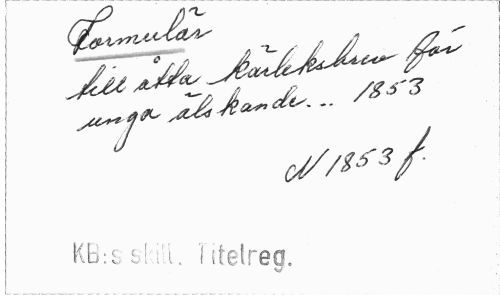 Formulär
till åtta kärleksbrev för
unga älskande... 1853
N 1853 f.
KB:s skill. Titelreg.